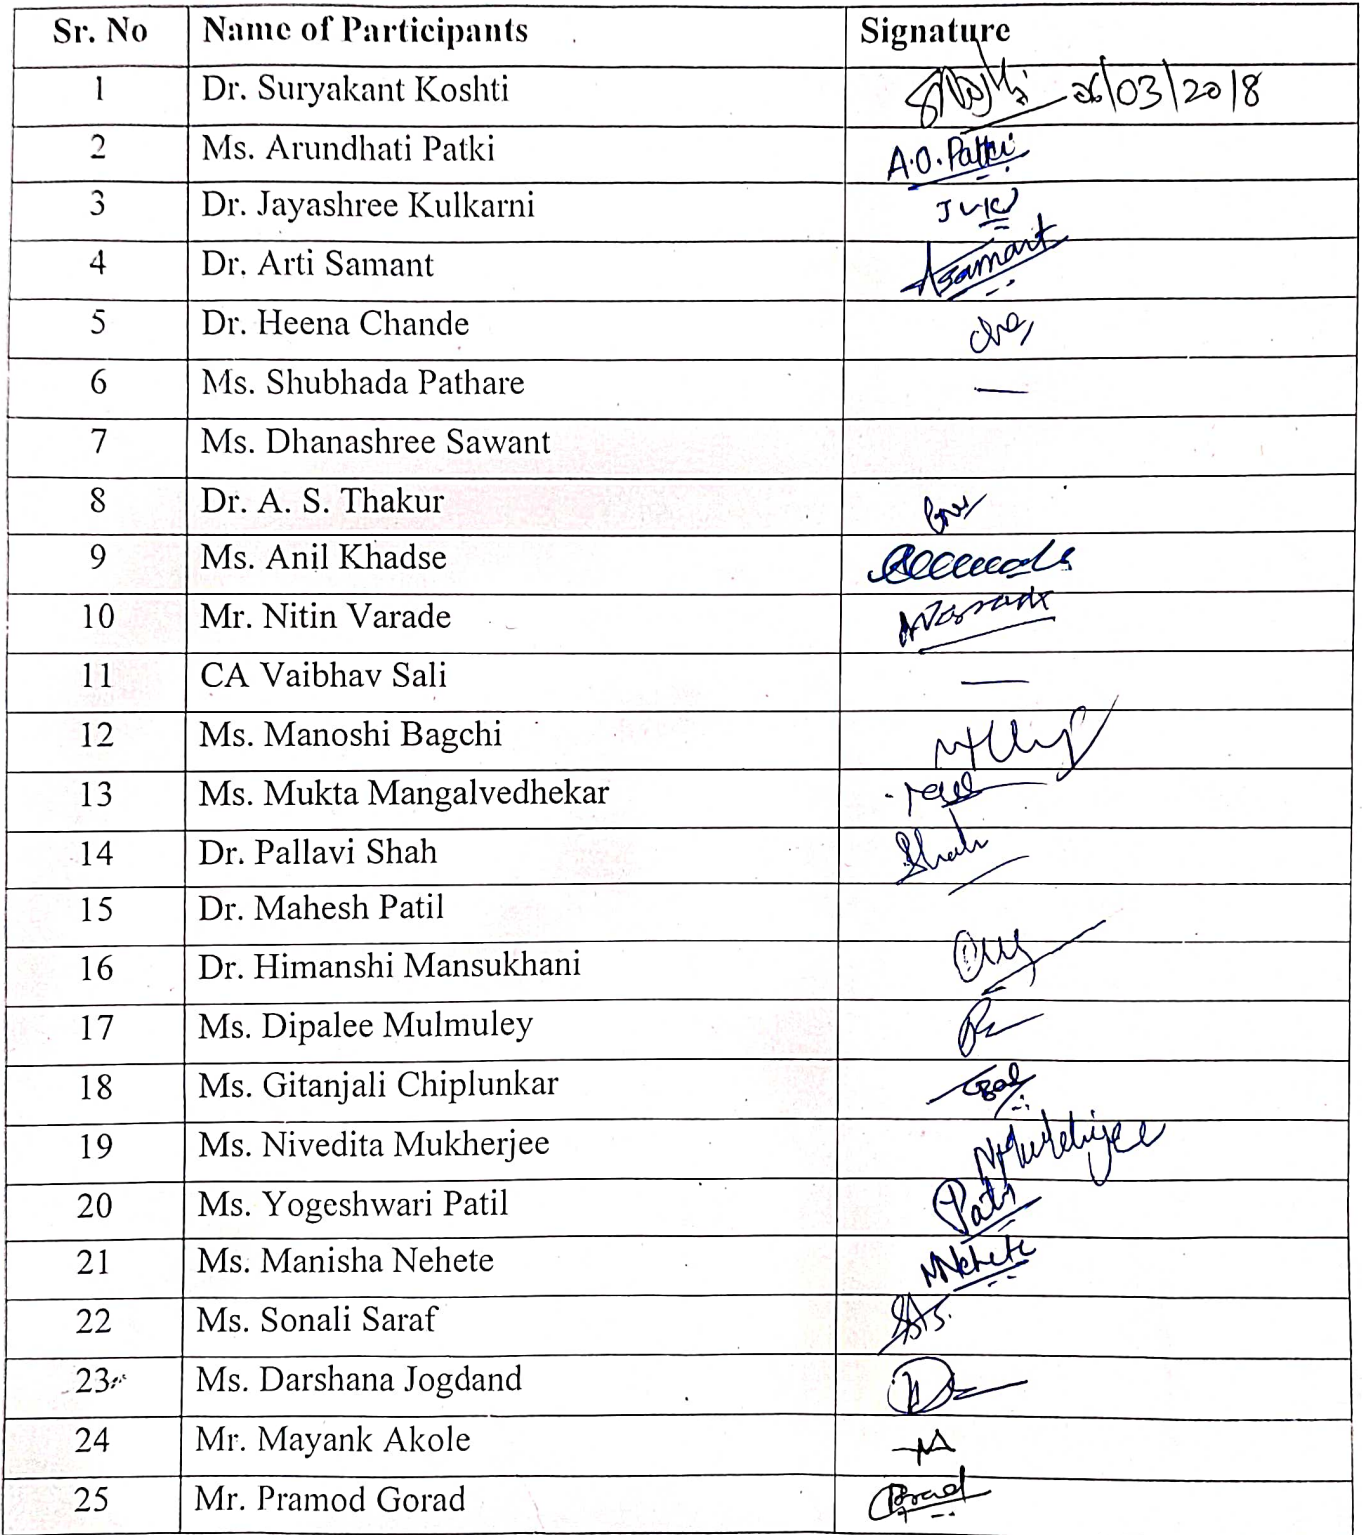 Sr. No Name of Participants Signature
1 Dr. Suryakant Koshti 26/03/2018
2 Ms. Arundhati Patki A.O. Patki
3 Dr. Jayashree Kulkarni
4 Dr. Arti Samant Asamant
5 Dr. Heena Chande
6 Ms. Shubhada Pathare —
7 Ms. Dhanashree Sawant
8 Dr. A. S. Thakur
9 Ms. Anil Khadse
10 Mr. Nitin Varade
11 CA Vaibhav Sali —
12 Ms. Manoshi Bagchi
13 Ms. Mukta Mangalvedhekar
14 Dr. Pallavi Shah Shah
15 Dr. Mahesh Patil
16 Dr. Himanshi Mansukhani
17 Ms. Dipalee Mulmuley
18 Ms. Gitanjali Chiplunkar
19 Ms. Nivedita Mukherjee NMukherjee
20 Ms. Yogeshwari Patil
21 Ms. Manisha Nehete MNehete
22 Ms. Sonali Saraf
23 Ms. Darshana Jogdand
24 Mr. Mayank Akole
25 Mr. Pramod Gorad